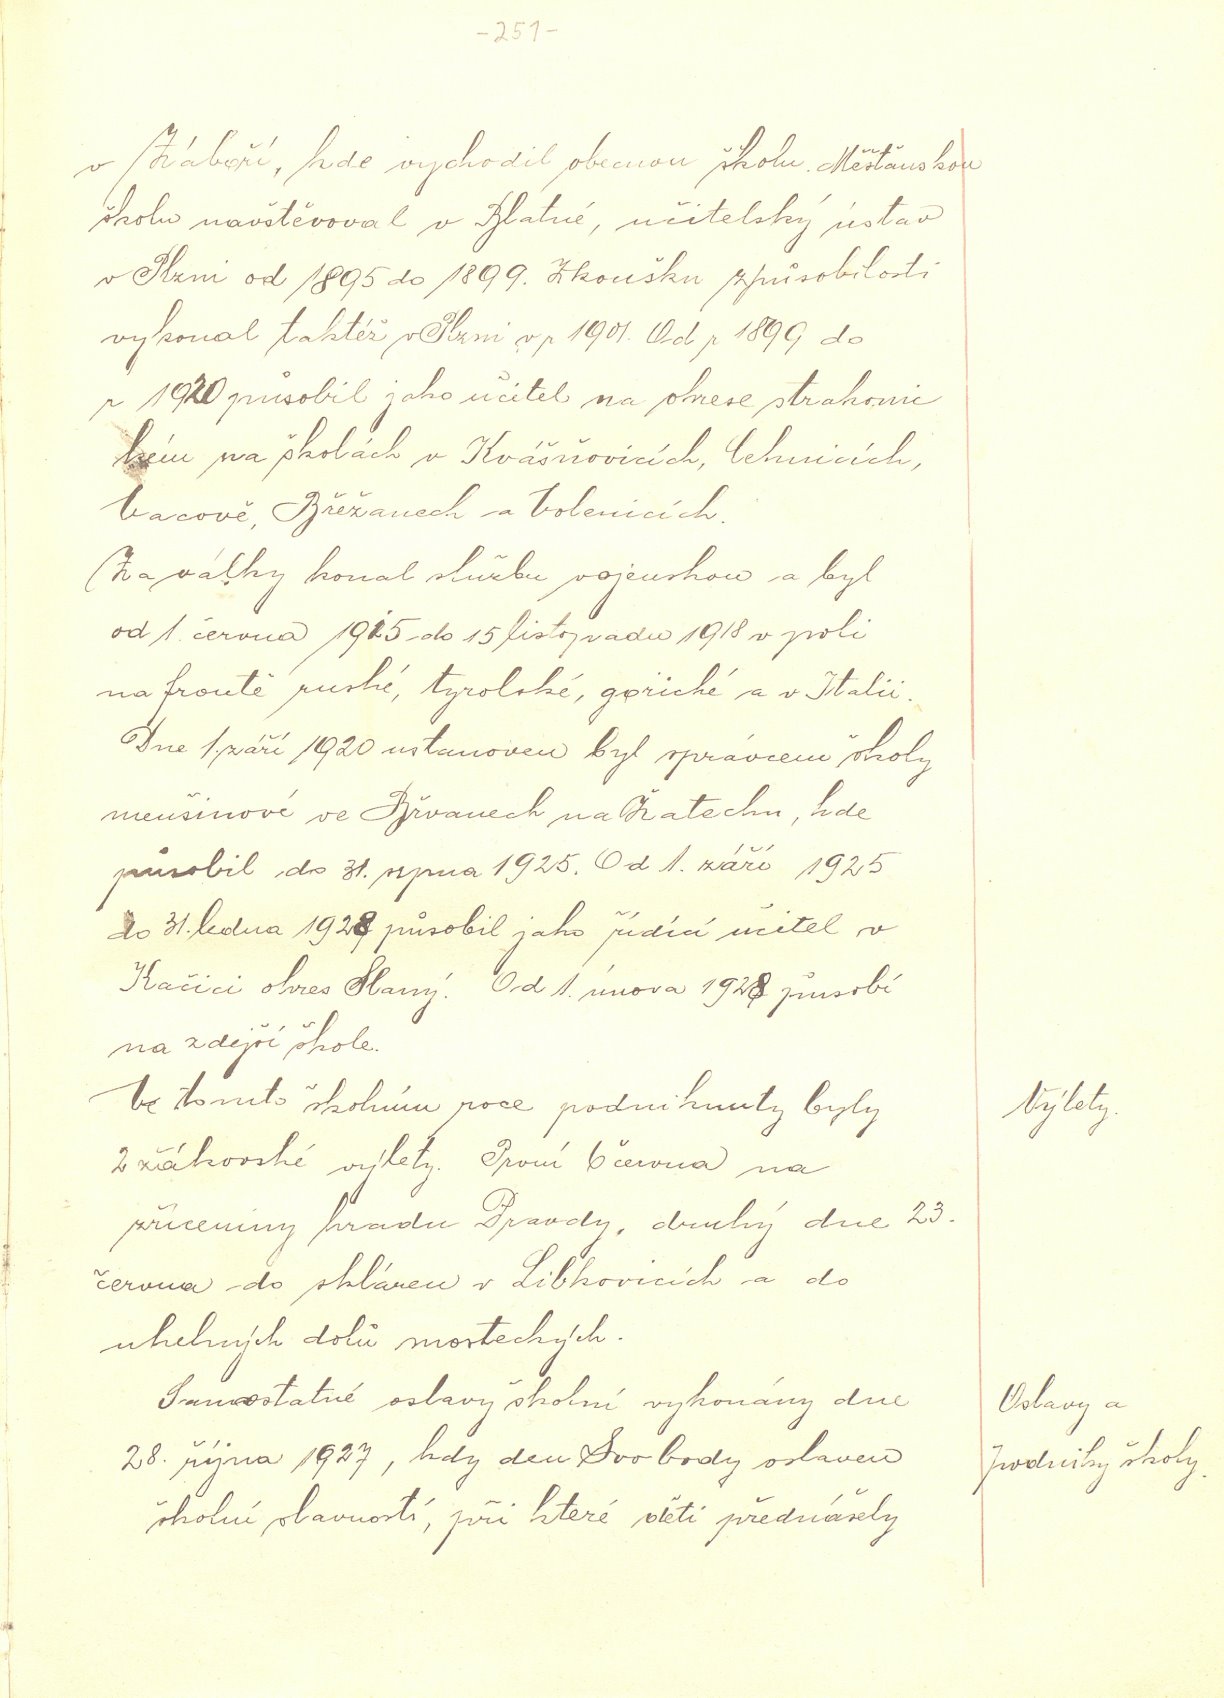 -251-
v Záboří, kde vychodil obecnou školu. Měšťanskou
školu navštěvoval v Blatné, učitelský ústav
v Plzni od 1895 do 1899. Zkoušku způsobilosti
vykonal taktéž v Plzni v r 1901. Od r 1899 do
r 1920 působil jako učitel na okrese strakonic
kém na školách v Kvášňovicích, Cehnicích,
Vacově, Břežanech a Volenicích.
Za války konal službu vojenskou a byl
od 1. června 1915 do 15 listopadu 1918 v poli
na frontě ruské, tyrolské, goriché a v Italii.
Dne 1. září 1920 ustanoven byl správcem školy
menšinové ve Břvanech na Žatecku, kde
působil do 31. srpna 1925. Od 1. září 1925
do 31. ledna 1928 působil jako řídící učitel v
Kačici okres Slaný. Od 1. února 1928 působí
na zdejší škole.
Ve tomto školním roce podniknuty byly
Výlety.
2 žákovské výlety. První 6 června na
zříceniny hradu Pravdy, druhý dne 23.
června do skláren v Libkovicích a do
uhelných dolů mosteckých.
Samostatné oslavy školní vykonány dne
Oslavy a
28. října 1927, kdy den Svobody oslaven
podniky školy.
školní slavností, při které děti přednášely